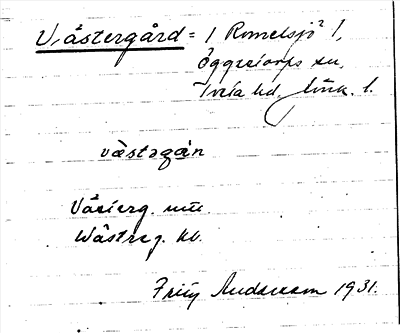 Västergård = 1 Romelsjö 1,
Öggestorps sn,
Tveta hd, Jönk. l.
västəgán
Västerg. mu.
Wästreg. kb.
Fritz Andersson 1931.